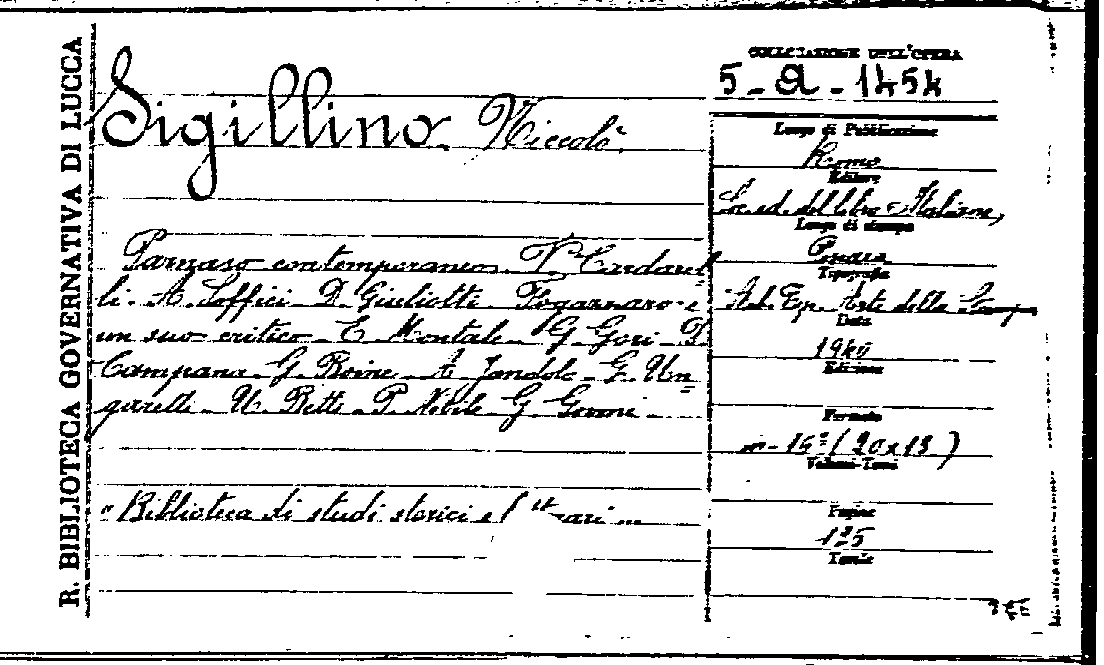 R. BIBLIOTECA GOVERNATIVA DI LUCCA
Sigillino Niccolò
Parnaso contemporaneo. V. Cardarel=
li. A. Soffici. D. Giuliotti. Fogazzaro e
un suo critico. E. Montale. G. Gori. D.
Campana. G. Boine. A. Jandolo. G. Un=
garetti. U. Betti. P. Nobile. G. Govoni.
"Biblioteca di studi storici e
COLLOCAZIONE DELL'OPERA
5-a-1454
Luogo di Pubblicazione
Roma
Editore
Soc. ed. del libro Italiano,
Luogo di stampa
Pescara
Tipografia
Stab. Tip. Arte della Stamp
Data
1940
Edizione
Formato
in-16° (20x13)
Volumi-Tomi
Pagine
125
Tavole